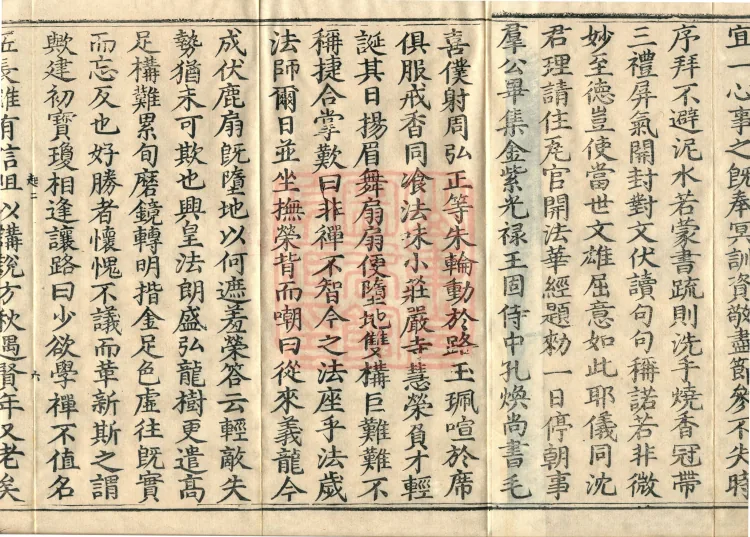 宜一心事之既奉冥訓資敬盡節參不失時
序拜不避泥水若蒙書疏則洗手燒香冠帶
三禮屏氣開封對文伏讀句句稱諾若非微
妙至德豈使當世文雄屈意如此耶儀同沈
君理請住瓦官開法華經題勑一日停朝事
羣公畢集金紫光祿王固侍中孔煥尚書毛
喜僕射周弘正等朱輪動於路玉珮喧於席
俱服戒香同飡法味小莊嚴寺慧榮負才輕
誕其日揚眉舞扇扇便墮地雙構巨難難不
稱捷合掌歎曰非禪不智今之法座乎法歲
法師爾日並坐撫榮背而嘲曰從來義龍今
成伏鹿扇既墮地以何遮羞榮答云輕敵失
勢猶未可欺也興皇法朗盛弘龍樹更遣高
足構難累旬磨鏡轉明揩金足色虛往既實
而忘反也好勝者懷愧不議而革新斯之謂
歟建初寶瓊相逢讓路曰少欲學禪不值名
匠長雖有信阻以講說方秋遇賢年又老矣
六